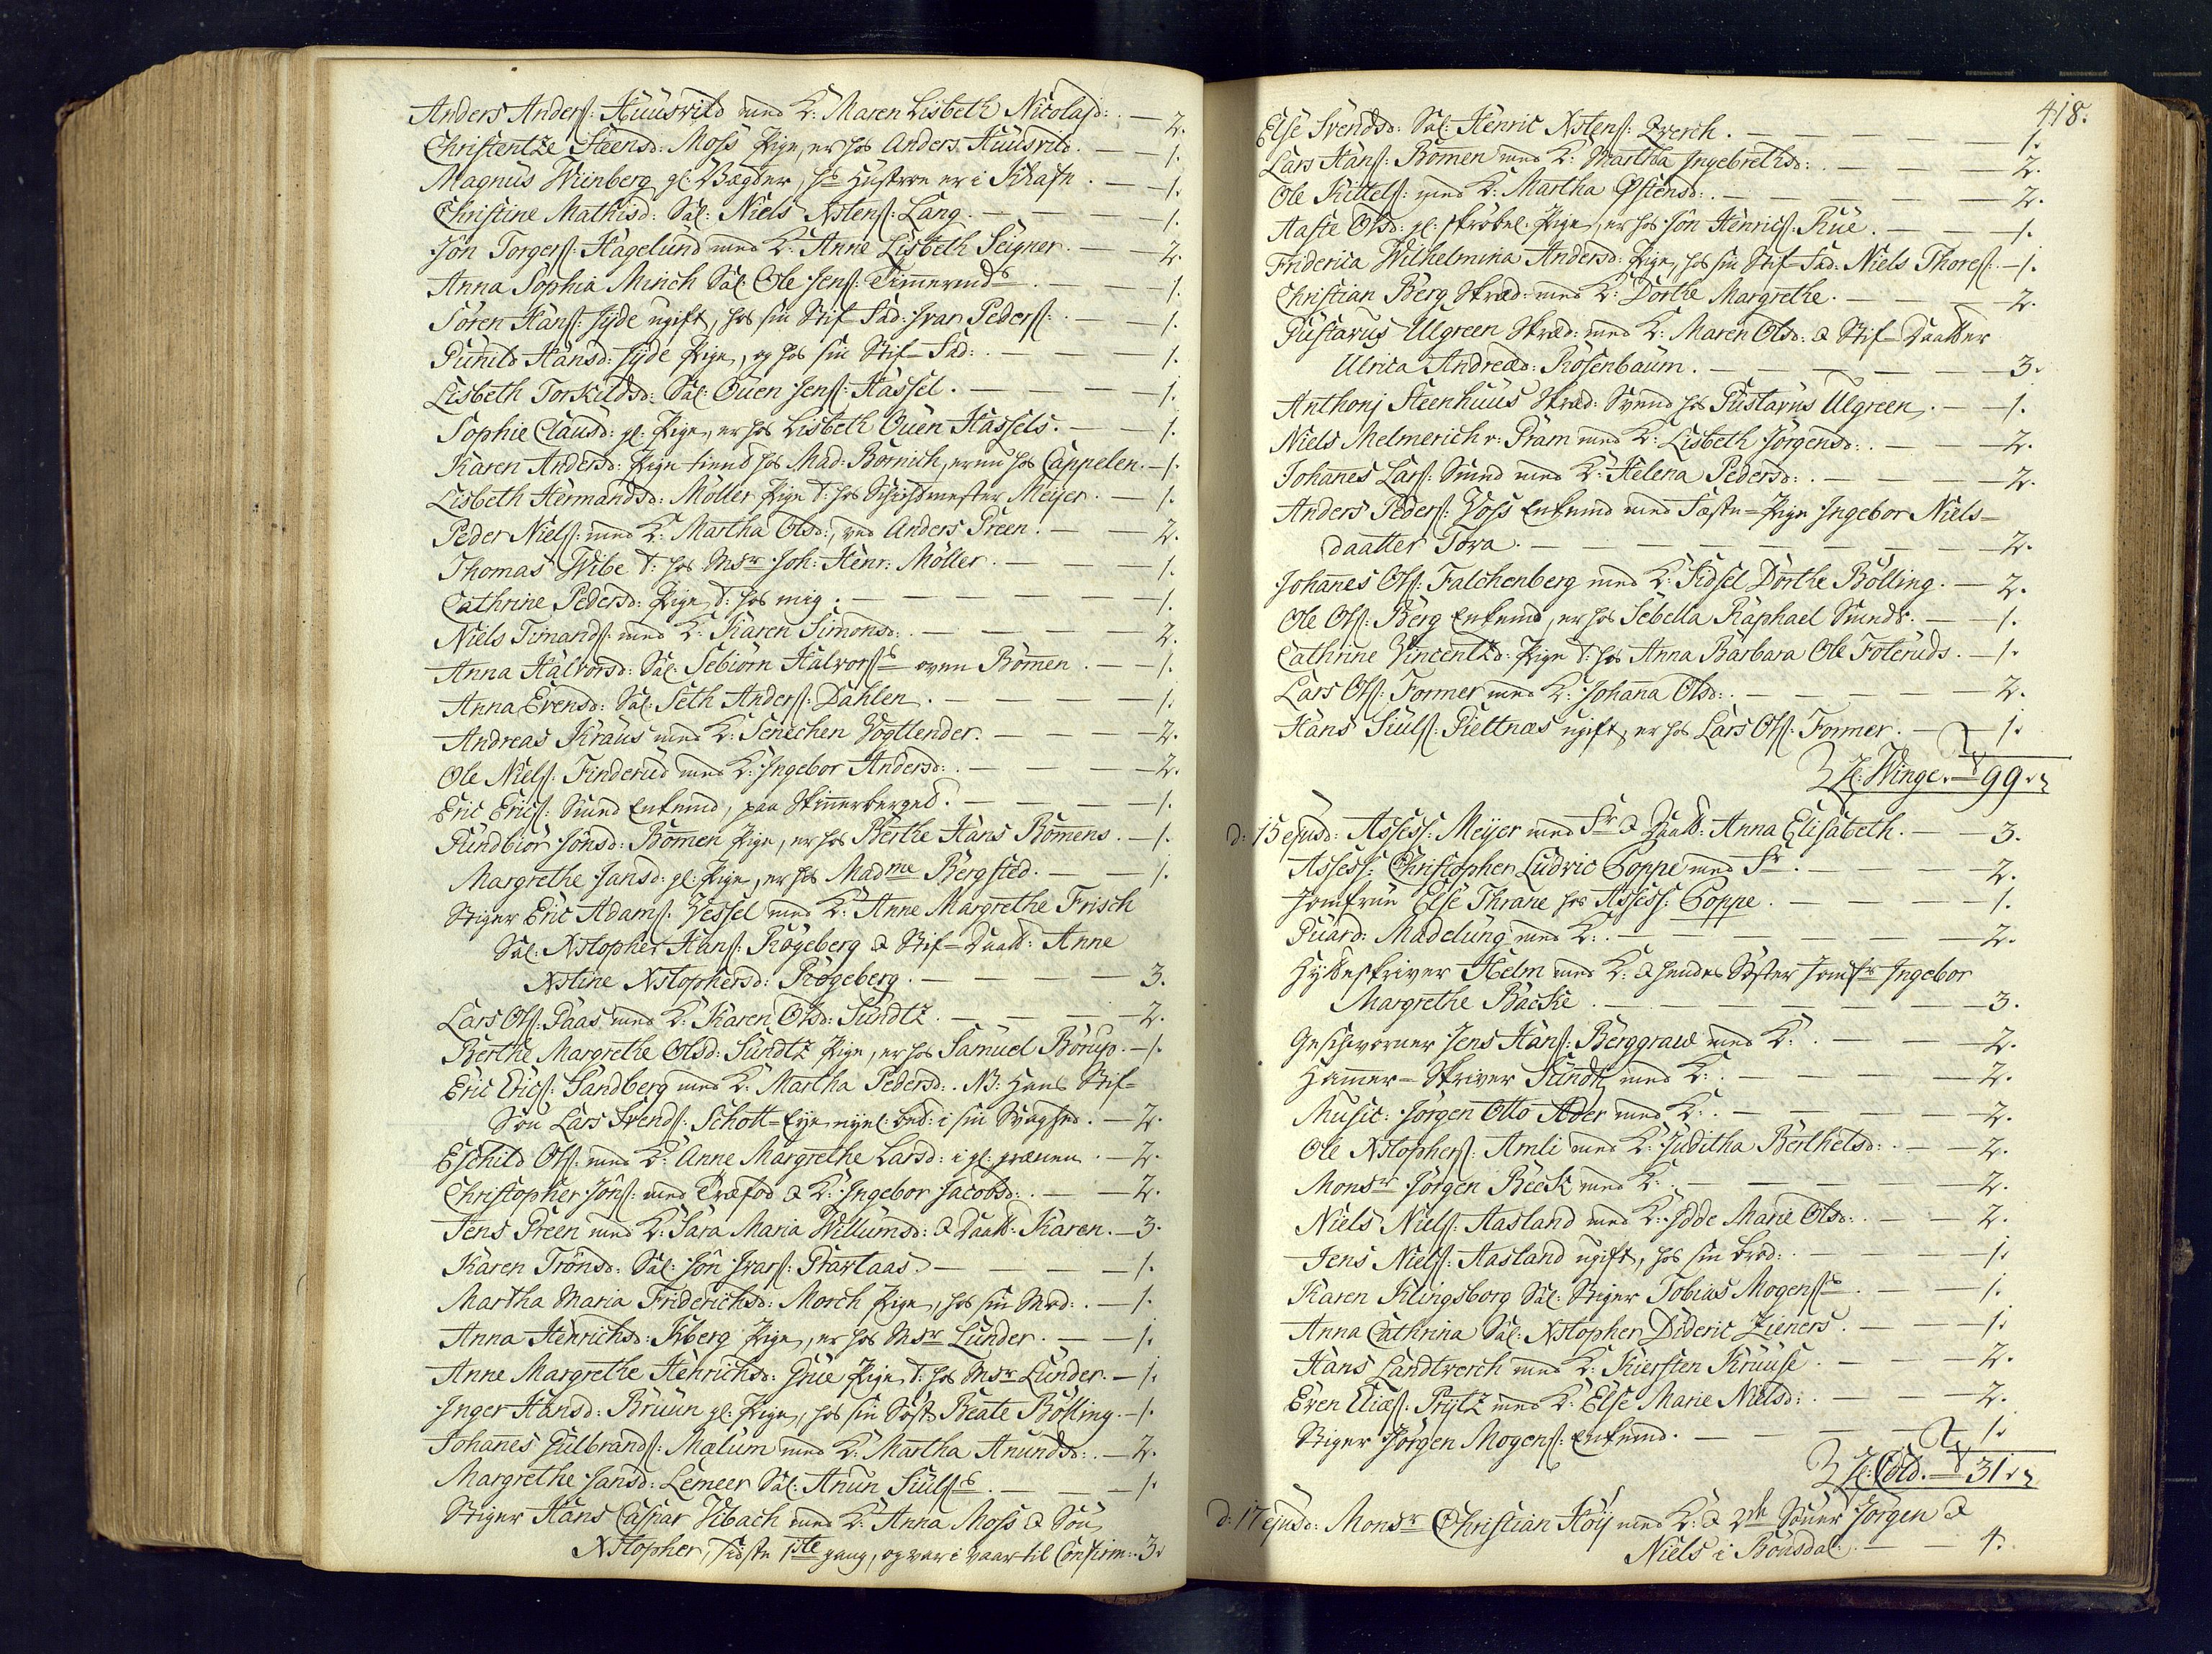 Anders Anders: Huusvild med K: Maren Lisbeth Nicolajd: — 2.
Christentze Steensd: Moss Pige, er hos Anders Huusvild. — 1.
Magnus Wiinberg gl: Vægter, hs Hustroe er i — 1.
Christine Mathisd: Sal: Niels Xstens: Lang. — — — 1.
Jôn Torgers: Hagelund med K: Anne Lisbeth Seigner. — 2.
Anna Sophia Minch Sal: Ole Jens: Timermds. — — 1.
Sören Hans: Jyde ugift, hos sin Stif-Fad: Ivar Peders: — — 1.
Gunild Hansd: Jyde Pige, og hos sin Stif-Fad: — — — 1.
Lisbeth Torkildsd: Sal: Ouen Jens: Hassel. — — — 1.
Sophie Clausd: gl: Pige, er hos Lisbeth Ouen Hassels. — — 1.
Karen Andersd: Pige tiend hos Mad: Bornich, er nu hos Cappelen. — 1.
Lisbeth Hermandsd: Möller Pige t: hos Schichtmester Meijer. — 1.
Peder Niels: med K: Martha Olsd:, ved Anders Preen. — 2.
Thomas Wibe t: hos Msr Joh: Henr: Möller. — — 1.
Cathrine Pedersd: Pige t: hos mig. — — — — 1.
Niels Timands: med K: Karen Simonsd: — — — 2.
Anna Halvorsd: Sal: Sebiörn Halvorss oven Bommen. — — 1.
Anna Evensd: Sal: Seth Anders: Dahlen. — — — 1.
Andreas Kraus med K: Senichen Vogtlender. — — — 2.
Ole Niels: Finderud med K: Ingebor Andersd: — — — 2.
Eric Erics: Smed Enkemd, paa Skinnerberget. — — — 1.
Gundbiör Jônsd: Bommen Pige, er hos Berthe Hans Bommens. — 1.
Margrethe Jansd: gl: Pige, er hos Madme Bergsted. — — 1.
Stiger Eric Adams: Vessel med K: Anne Margrethe Frisch
Sal: Xstopher Hans: Rögeberg & Stif-Daatt: Anne
Xstine Xstophersd: Rögeberg. — — — — 3.
Lars Ols: Paas med K: Karen Olsd: Sundtz. — — — 2.
Berthe Margrethe Olsd: Sundtz Pige, er hos Samuel Börup. — 1.
Eric Erics: Sandberg med K: Martha Pedersd: NB: Hans Stif-
Sön Lars Svends: Schott- i sin Svaghed. — 2.
Eschild Ols: med K: Anne Margrethe Larsd: i gl: — 2.
Christopher Jôns: med Træfod & K: Ingebor Jacobsd: — — 2.
Jens Preen med K: Sara Maria Willumsd: & Daatt: Karen. — 3.
Karen Trônsd: Sal: Jôn Ivars: — — — 1.
Martha Maria Friderichsd: Morch Pige, hos sin Mod: — 1.
Anna Henrichsd: Kberg Pige, er hos Msr Lunder. — — 1.
Anne Margrethe Henrichsd: Grüe Pige t: hos Msr Lunder. — 1.
Inger Hansd: Bruun gl: Pige, hos sin Söst: Beate Bölling. — 1.
Johanes Gulbrands: Mælum med K: Martha Anundsd: — 2.
Margrethe Jansd: Lemeer Sal: Anun Siulss. — — — 1.
Stiger Hans Caspar Vibach med K: Anna Moss & Sön
Xstopher, sidste 1ste gang, og var i vaar til Confirm: 3.
418.
Else Svendsd: Sal: Henric Xstens: Qverch. — — — — 1.
Lars Hans: Bommen med K: Martha Ingebrethsd: — — — 2.
Ole Kittels: med K: Martha Östensd: — — — — 2.
Aaste Olsd: gl: skröbel: Pige, er hos Jôn Henrics: Rue. — — 1.
Friderica Wilhelmina Andersd: Pige, hos sin Stif-Fad: Niels Thores: — 1.
Christian Berg Skræd: med K: Dorthe Margrethe. — — — 2.
Gustavus Ulgreen Skræd: med K: Maren Olsd: & Stif-Daatter
Ulrica Andreæd: Rosenbaum. — — — — — 3.
Anthonj Steenhuus Skræd: Svend hos Gustavus Ulgreen. — 1.
Niels Melmerich v: Pram med K: Lisbeth Jörgensd: — — 2.
Johanes Lars: Smed med K: Helena Pedersd: — — — 2.
Anders Peders: Voss Enkemd med Fæste-Pige Ingebor Niels-
daatter Tova. — — — — — — — 2.
Johanes Ols: Falchenberg med K: Sidsel Dorthe Bölling. — 2.
Ole Ols: Berg Enkemd, er hos Sebella Raphael Smeds. — 1.
Cathrine Vincentzd: Pige t: hos Anna Barbara Ole Foteruds. — 1.
Lars Ols: Former med K: Johana Olsd: — — — — 2.
Hans Siuls: Gieltnæs ugift, er hos Lars Ols: Former. — 1.
H: Winge. — 99.
d: 15 ejusd: Assess: Meijer med Fr & Daatt: Anna Elisabeth. — 3.
Assess: Christopher Ludvic Coppe med Fr. — — — 2.
Jomfrue Else Thrane hos Assess: Coppe. — — — — 1.
Guard: Madelung med K: — — — — — 2.
Hytteskriver Helm med K: & hendes Söster Jomfr Ingebor
Margrethe Backe. — — — — — — 3.
Geschworner Jens Hans: Berggrau med K: — — — 2.
Hammer-Skriver Sundtz med K: — — — — 2.
Music: Jörgen Otto Ader med K: — — — — — 2.
Ole Xstophers: Amli med K: Juditha Berthelsd: — — 2.
Monsr Jörgen Beck med K: — — — — 2.
Niels Niels: Aasland med K: Idde Marie Olsd: — — 2.
Jens Niels: Aasland ugift, hos sin brod: — — — 1.
Karen Klingsborg Sal: Stiger Tobias Mogenss. — — — 1.
Anna Cathrina Sal: Xstopher Dideric Zieners. — — — 1.
Hans Landtverch med K: Kiersten Kruuse. — — — 2.
Even Elias: Prytz med K: Else Marie Nielsd: — — — 2.
Stiger Jörgen Mogens: Enkemd. — — — — — 1.
H: Cold. — 31.
d: 17 ejusd: Monsr Christian Höij med K: & 2de Sönner Jörgen &
Niels i Bönsdal. — — 4.